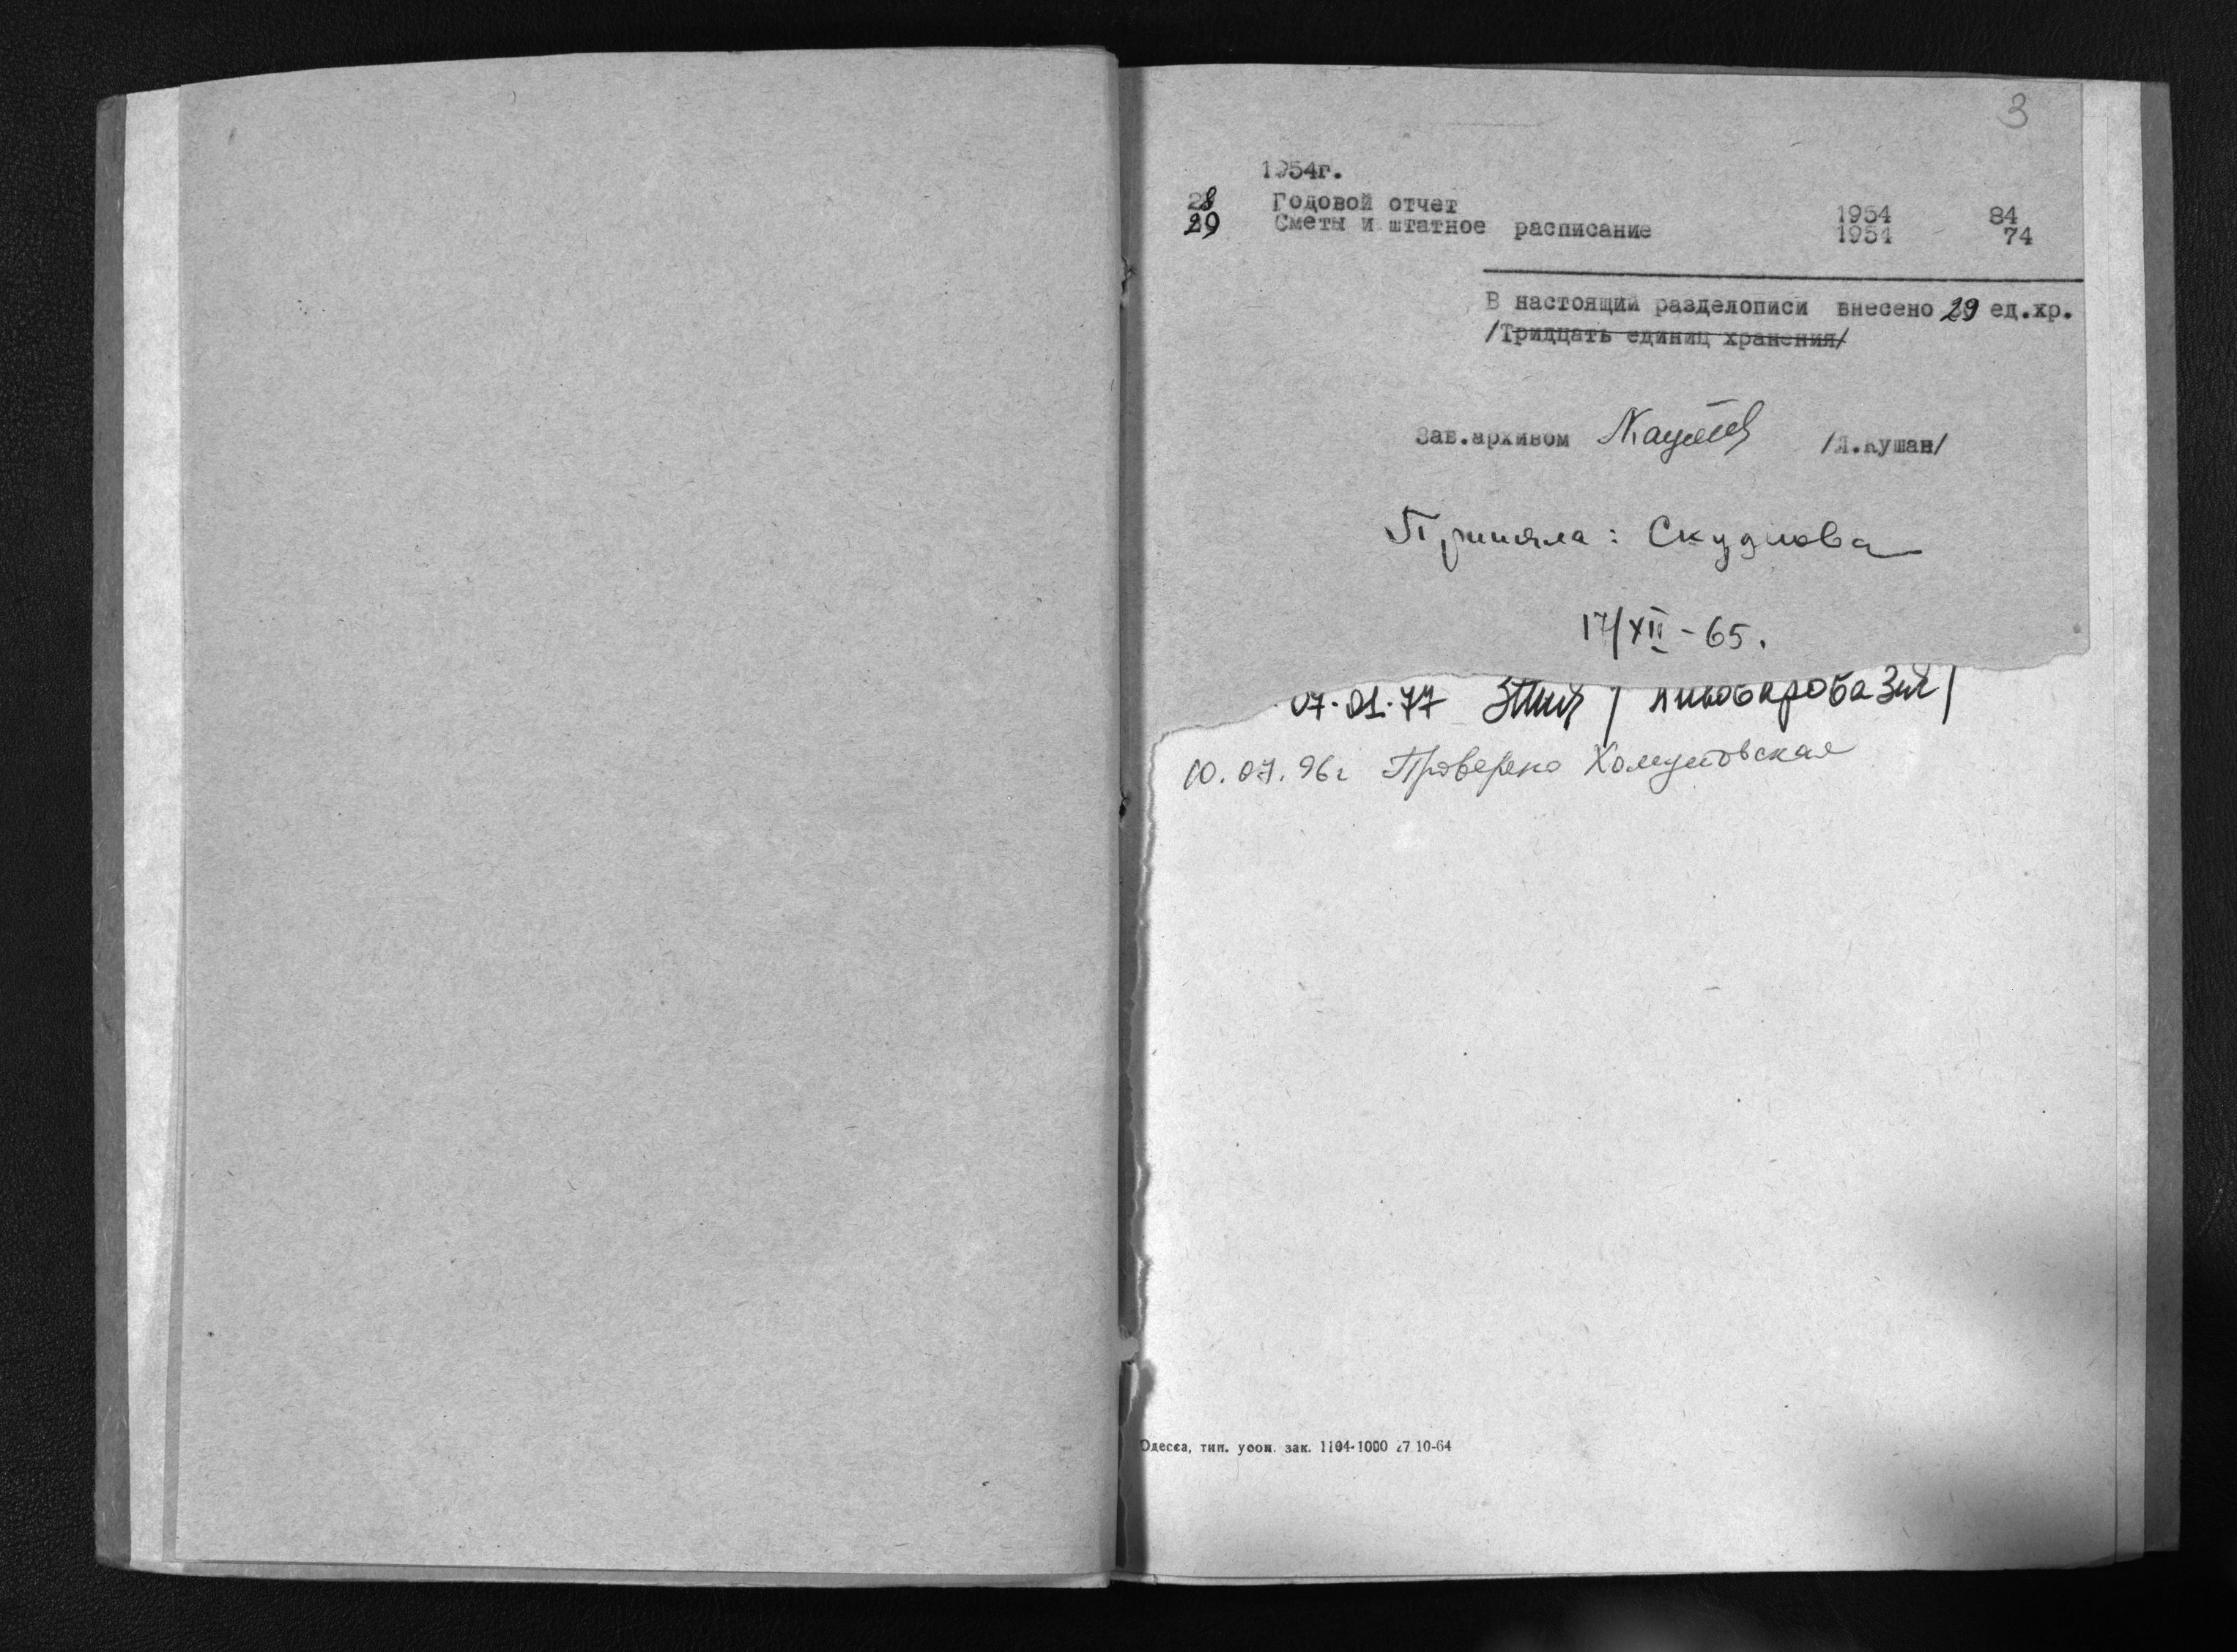 3
1954г.
28 Годовой отчет 1954 84
29 Сметы и штатное расписание 1954 74
В настоящий разделописи внесено 29 ед.хр.
/Тридцать единиц хранения/
Зав.архивом /Я.Кушан/
Приняла: Скуднова
17/XII-65.
07.01.77
10.07.96г Проверено Хомутовская
Одесса, тип. зак. 1104-1000 27 10-64